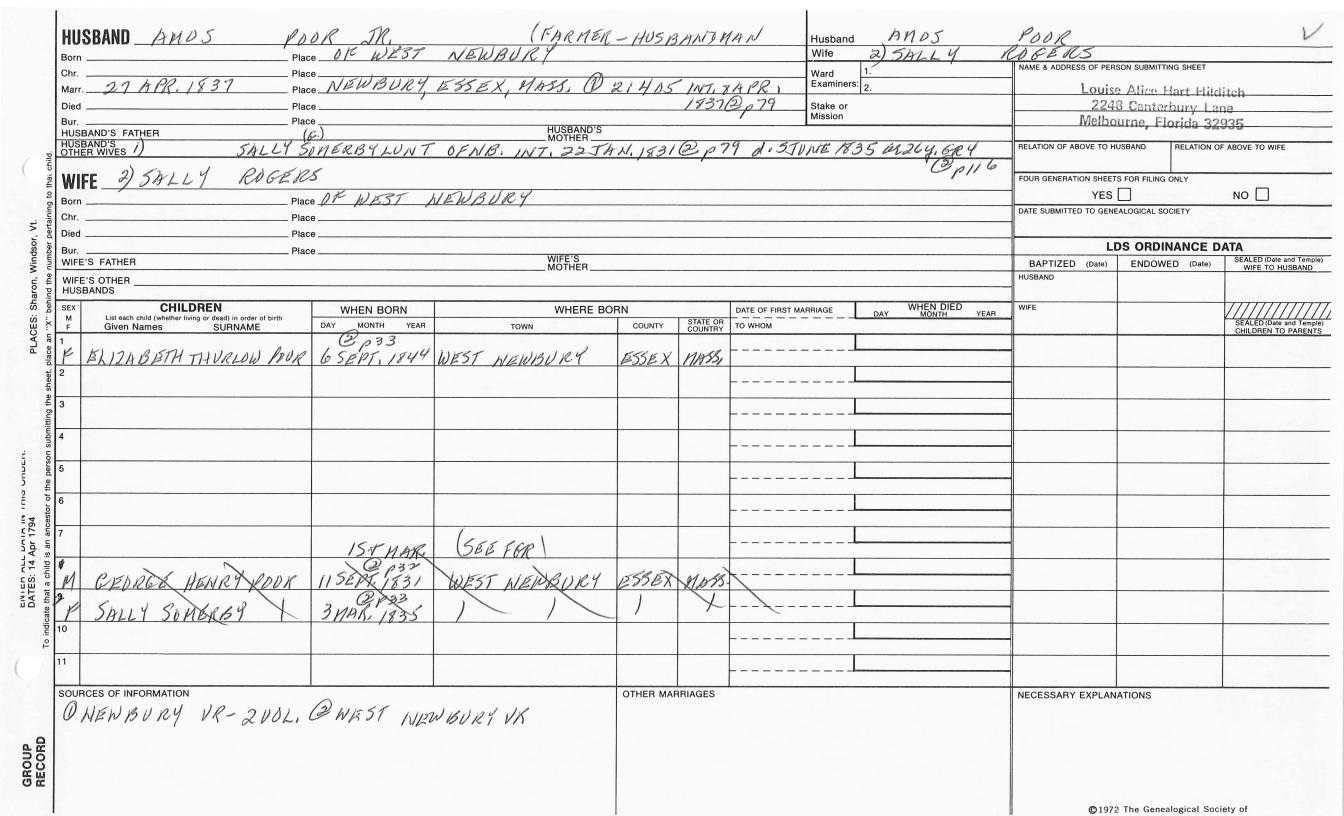 HUSBAND AMOS POOR JR. (FARMER-HUSBANDMAN
Born Place OF WEST NEWBURY
Chr. Place
Marr. 27 APR. 1837 Place NEWBURY, ESSEX, MASS. ① 2:405 INT. 8 APR.
Died Place 1837 ② p79
Bur. Place
HUSBAND'S FATHER HUSBAND'S MOTHER
HUSBAND'S OTHER WIVES 1) SALLY SOMERBY LUNT OF NB. INT. 22 JAN. 1831 ② p79 d. 3 JUNE 1835 as 26y. GR4
② p116
WIFE 2) SALLY ROGERS
Born Place OF WEST NEWBURY
Chr. Place
Died Place
Bur. Place
WIFE'S FATHER WIFE'S MOTHER
WIFE'S OTHER HUSBANDS
Husband AMOS POOR
Wife 2) SALLY ROGERS
Ward Examiners: 1.
2.
Stake or Mission
NAME & ADDRESS OF PERSON SUBMITTING SHEET
Louise Alice Hart Hilditch
2248 Canterbury Lane
Melbourne, Florida 32935
RELATION OF ABOVE TO HUSBAND RELATION OF ABOVE TO WIFE
FOUR GENERATION SHEETS FOR FILING ONLY
YES NO
DATE SUBMITTED TO GENEALOGICAL SOCIETY
LDS ORDINANCE DATA
BAPTIZED (Date) ENDOWED (Date) SEALED (Date and Temple) WIFE TO HUSBAND
HUSBAND
WIFE
SEALED (Date and Temple) CHILDREN TO PARENTS
SEX M F
CHILDREN
List each child (whether living or dead) in order of birth
Given Names SURNAME
WHEN BORN
DAY MONTH YEAR
WHERE BORN
TOWN COUNTY STATE OR COUNTRY
DATE OF FIRST MARRIAGE
TO WHOM
WHEN DIED
DAY MONTH YEAR
1 ② p33
F ELIZABETH THURLOW POOR 6 SEPT. 1844 WEST NEWBURY ESSEX MASS.
2
3
4
5
6
7
1ST MAR. (SEE FGR)
② p32
M GEORGE HENRY POOR 11 SEPT. 1831 WEST NEWBURY ESSEX MASS.
② p33
F SALLY SOMERBY 3 MAR. 1835
10
11
SOURCES OF INFORMATION
① NEWBURY VR- 2 VOL. ② WEST NEWBURY VR
OTHER MARRIAGES
NECESSARY EXPLANATIONS
©1972 The Genealogical Society of
ENTER ALL DATA IN THIS ORDER:
DATES: 14 Apr 1794
PLACES: Sharon, Windsor, Vt.
To indicate that a child is an ancestor of the person submitting the sheet, place an "X" behind the number pertaining to that child.
GROUP RECORD